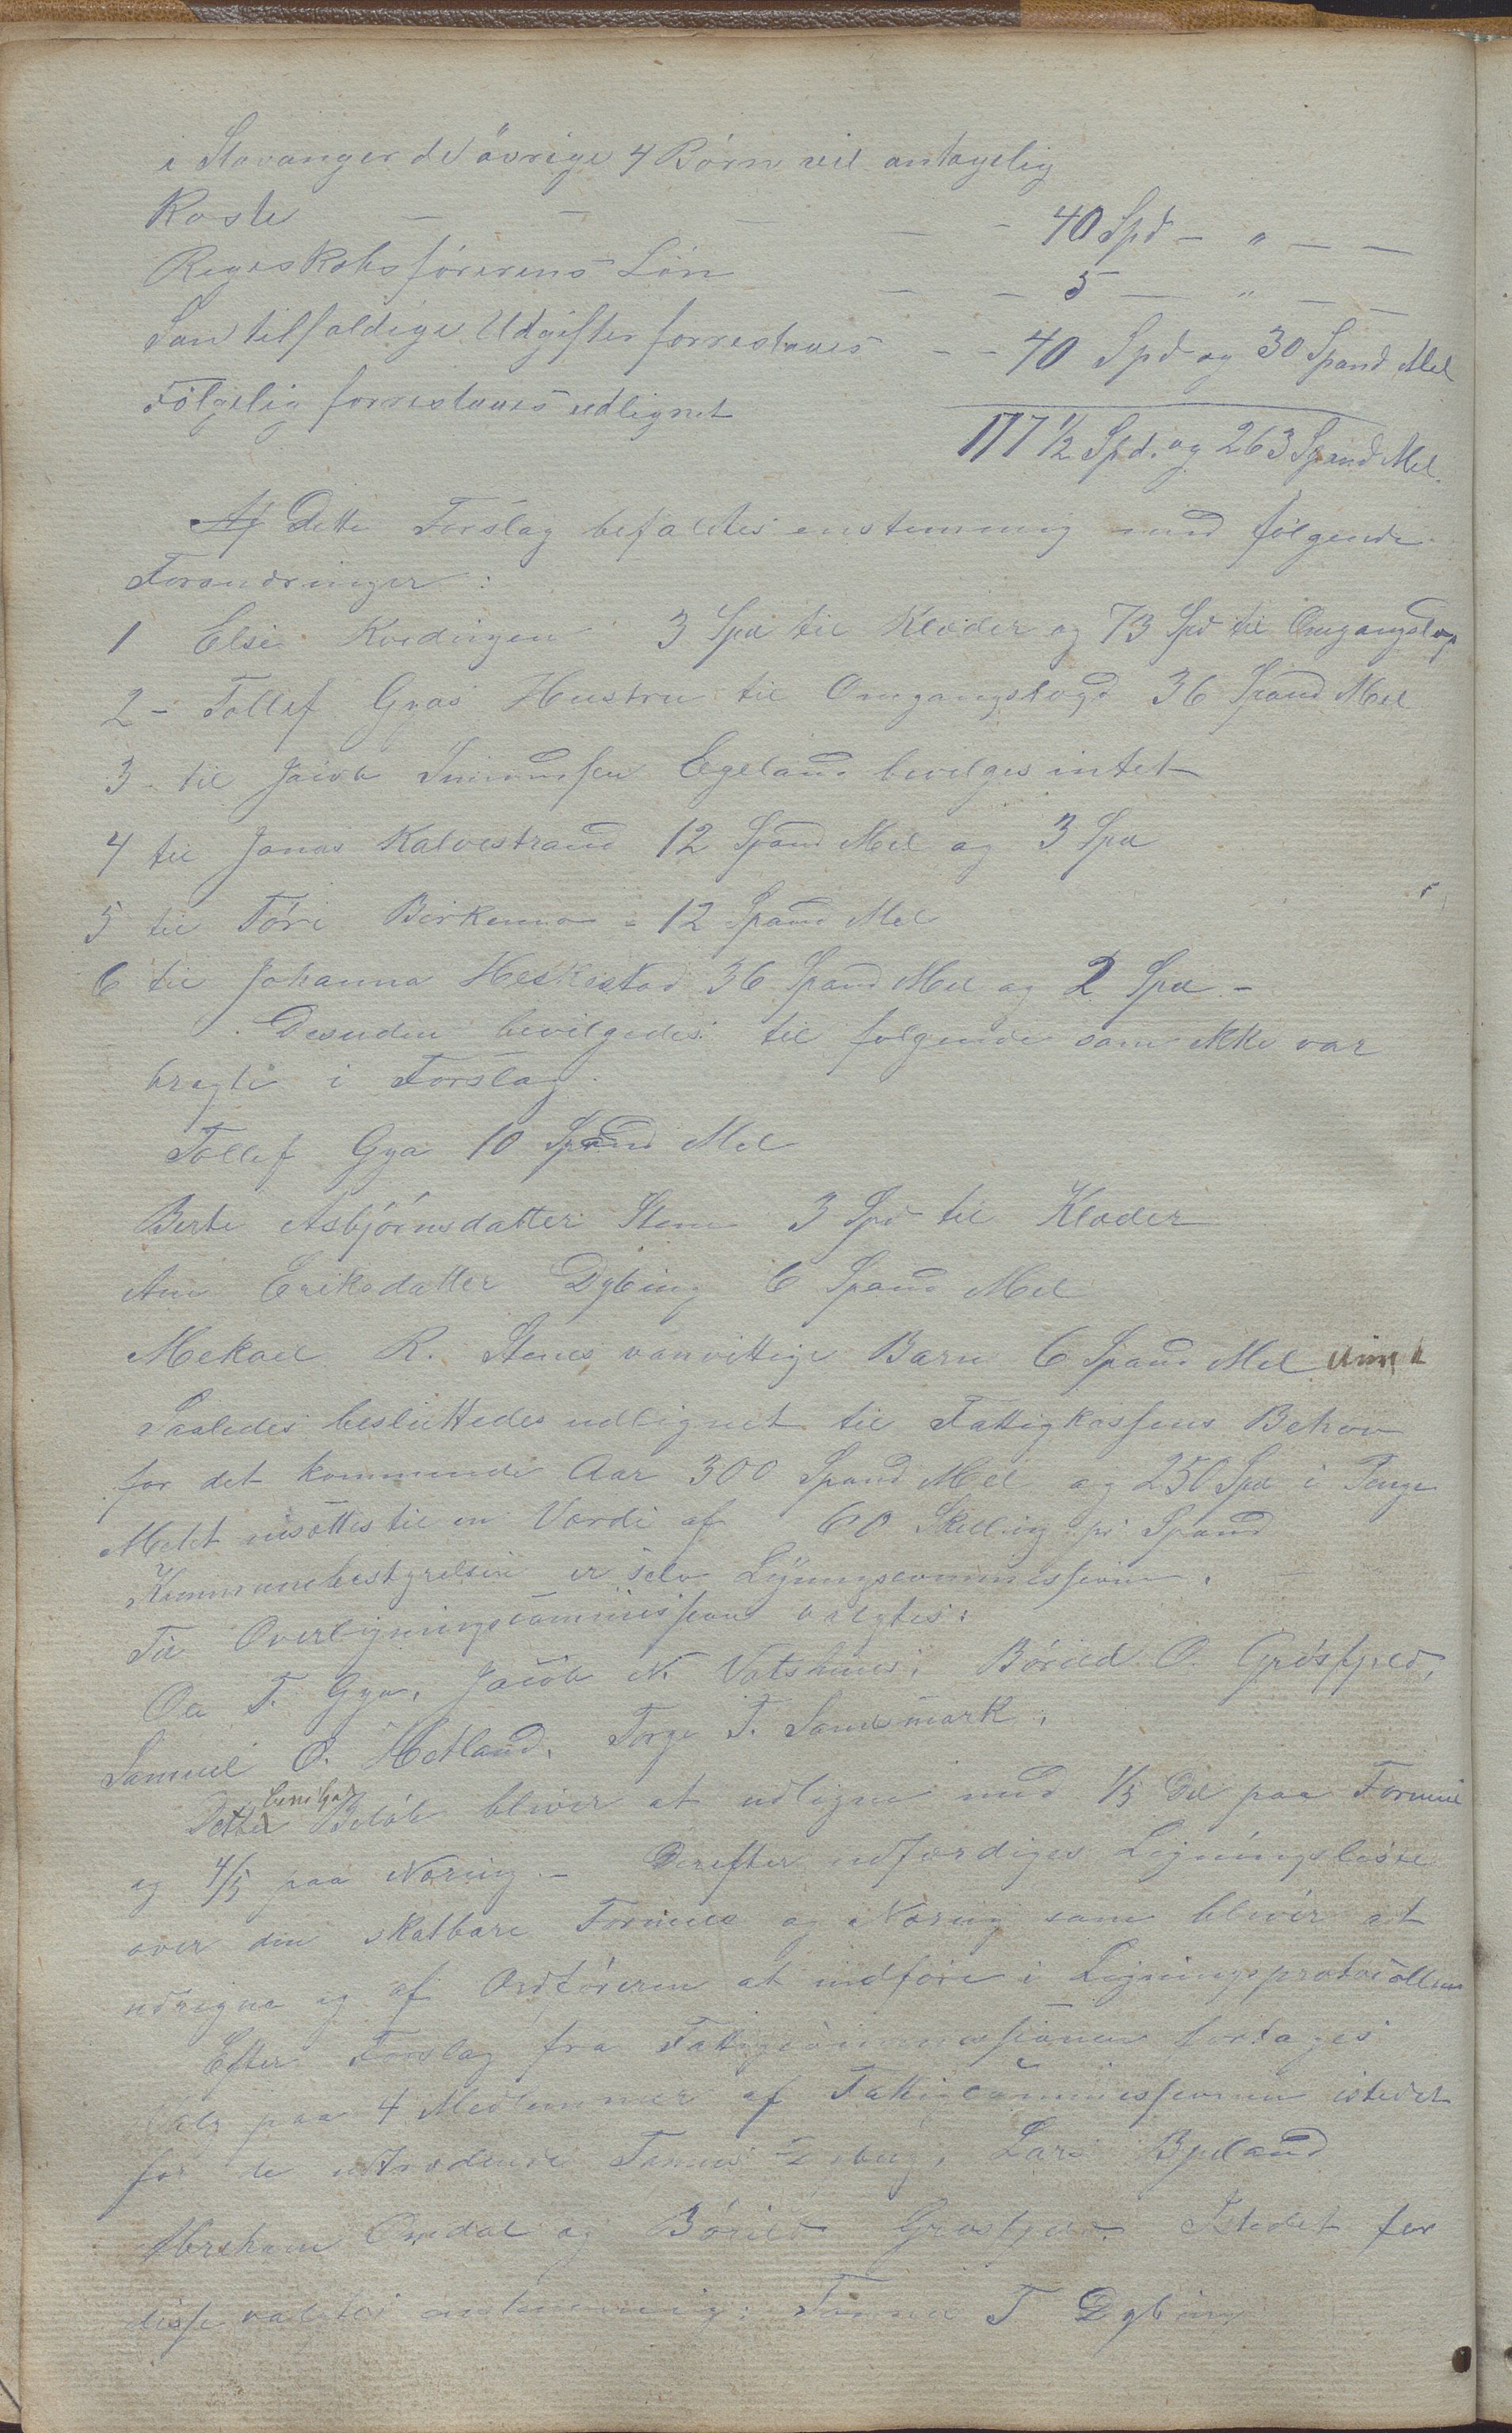 i Stavanger de övrige 4 Börn vil antagelig
Koste - - - - - 40 Spd - " - -
Regeskabsförerens Lön - - 5 - " - -
Som tilfaldige Udgifter forrestaaes - - 40 Spd og 30 Spand Mel
Fölgelig forrestaaes udlignet
177 1/2 Spd. og 263 Spand Mel.
Af Dette Forslag befaldtes enstemmig med fölgende
Forandringer:
1 Elsi Kvedingen 3 Spd til Klæder og 73 Spd til Omgangslægd
2 - Tollef Gyas Hustru til Omgangslægd 36 Spand Mel
3 - til Jacob Egeland bevilges intet
4 til Jonas Kalvestrand 12 Spand Mel og 3 Spd
5 til Töri Birkemo - 12 Spand Mel
6 til Johanna Heskestad 36 Spand Mel og 2 Spd -
Desuden bevilgedes til folgende som ikke var
bragte i Forslag.
Tollef Gya 10 Spand Mel
Berte Asbjörnsdatter Stene 3 Spd til Klæder
Ane Eriksdatter Dybing 6 Spand Mel
Mekael R. Stenes vanvittige Barn 6 Spand Mel
Saaledes besluttedes udlignet til Fattigkassens Behov
for det kommende Aar 300 Spand Mel og 250 Spd i Penge
Melet ansættes til en Værdi af 60 Skilling pr Spand
Kommunebestyrelsen er selv Ligningscommission.
Til Overligningscommission valgtes:
Ola T. Gya, Jacob N. Vatshuus, Böril O. Grösfjeld,
Samuel O. Hetland, Torge T. Sandsmark.
Dette Belöb bliver at udligne med 1/5 Del paa Formue
og 4/5 paa Næring. - Derefter udfærdiges Ligningsliste
over den skatbare Formue og Næring som bliver at
udregne og af Ordföreren at indföre i Ligningsprotocollen
Efter Forslag fra Fattigcommissionen fortages
Valg paa 4 Medlemmer af Fattigcommissionen istedet
for de udtrædende Lars Bjelland
Abraham og Böril Grösfjeld. Istedet for
disse valgtes enstemmig: T Dybing